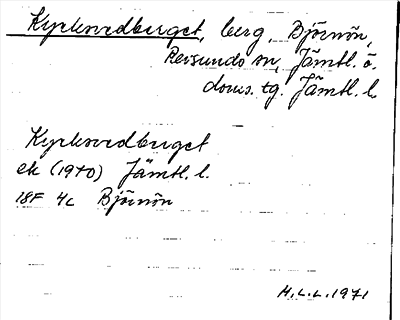 Kyrksvedberget, berg, Björnön,
Revsunds sn, Jämtl. ö.
doms. tg. Jämtl. l.
Kyrksvedberget
ek (1970) Jämtl. l.
18F 4c Björnön
H.L.L. 1971